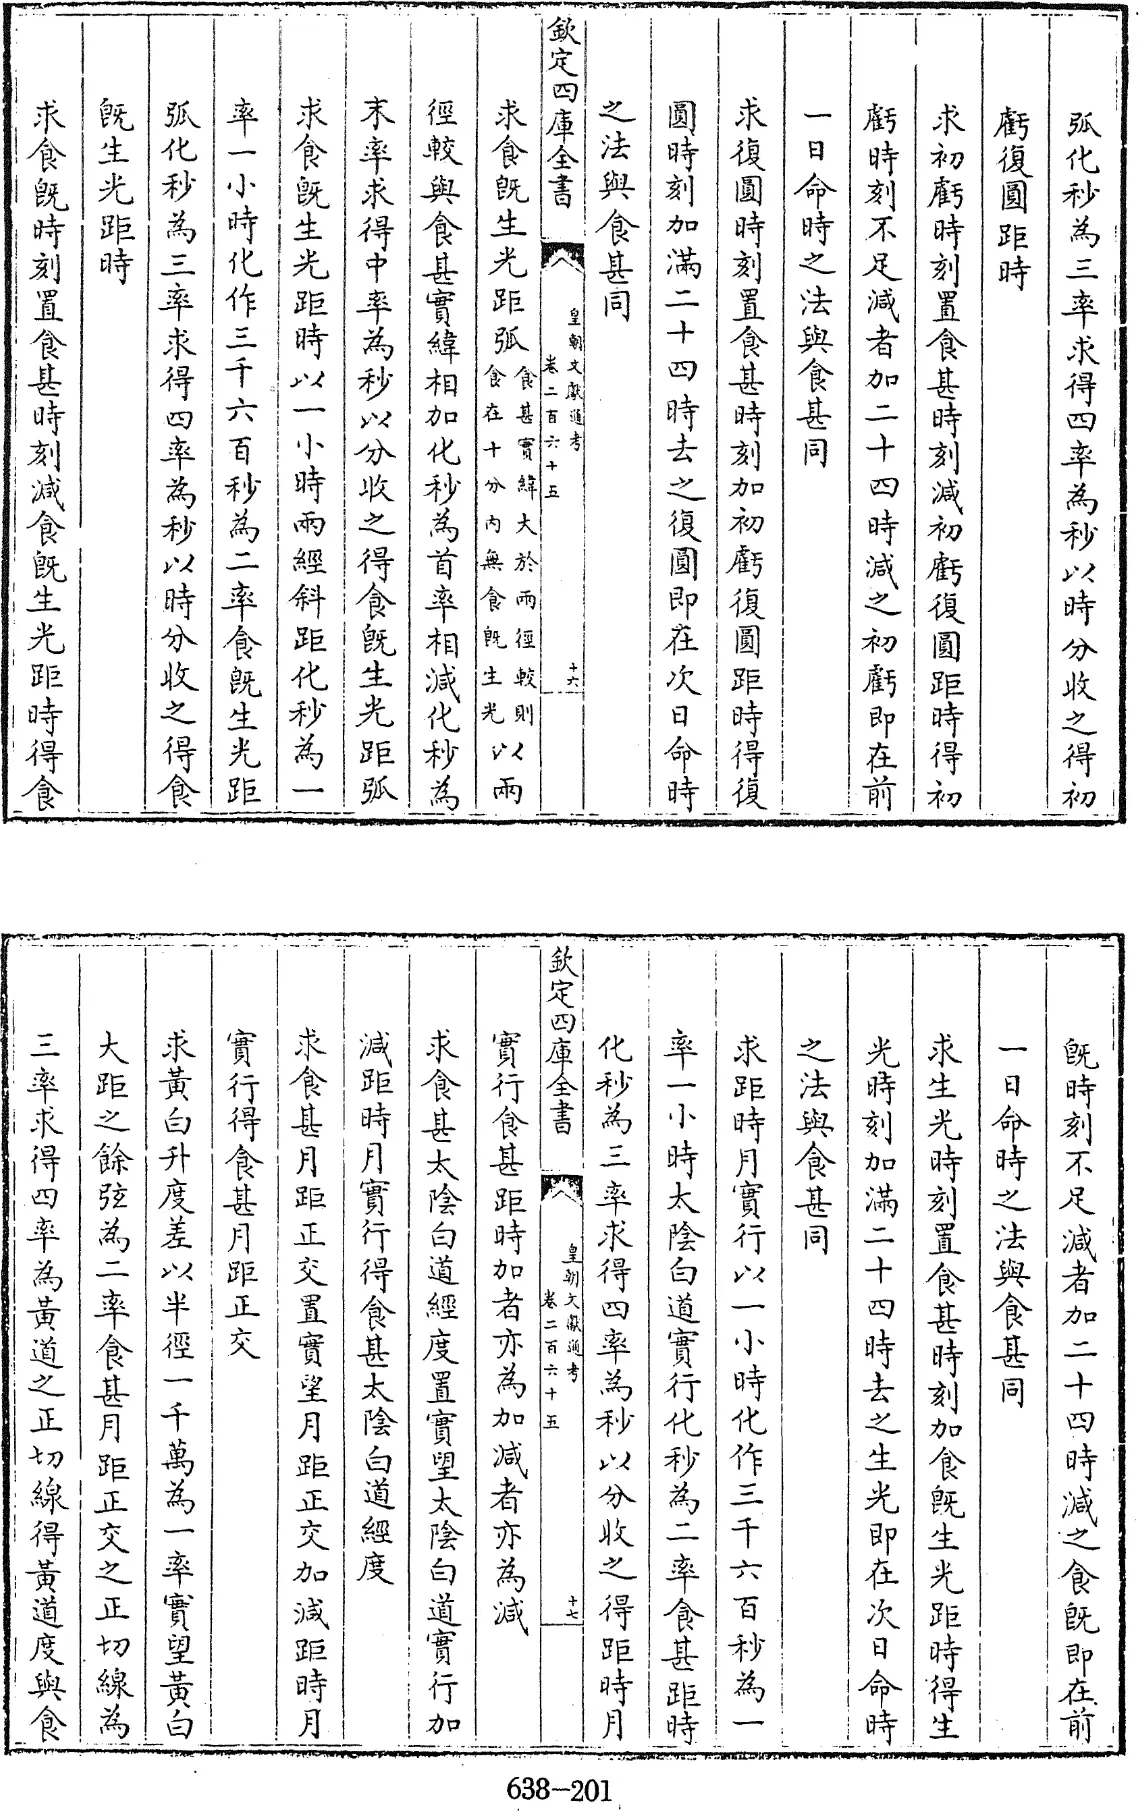 弧化秒為三率求得四率為秒以時分收之得初
虧復圓距時
求初虧時刻置食甚時刻減初虧復圓距時得初
虧時刻不足減者加二十四時減之初虧即在前
一日命時之法與食甚同
求復圓時刻置食甚時刻加初虧復圓距時得復
圓時刻加滿二十四時去之復圓即在次日命時
之法與食甚同
欽定四庫全書
皇朝文獻通考
卷二百六十五
十六
求食既生光距弧食甚實緯大於兩徑較則
食在十分內無食既生光以兩
徑較與食甚實緯相加化秒為首率相減化秒為
末率求得中率為秒以分收之得食既生光距弧
求食既生光距時以一小時兩經斜距化秒為一
率一小時化作三千六百秒為二率食既生光距
弧化秒為三率求得四率為秒以時分收之得食
既生光距時
求食既時刻置食甚時刻減食既生光距時得食
既時刻不足減者加二十四時減之食既即在前
一日命時之法與食甚同
求生光時刻置食甚時刻加食既生光距時得生
光時刻加滿二十四時去之生光即在次日命時
之法與食甚同
求距時月實行以一小時化作三千六百秒為一
率一小時太陰白道實行化秒為二率食甚距時
化秒為三率求得四率為秒以分收之得距時月
欽定四庫全書
皇朝文獻通考
卷二百六十五
十七
實行食甚距時加者亦為加減者亦為減
求食甚太陰白道經度置實望太陰白道實行加
減距時月實行得食甚太陰白道經度
求食甚月距正交置實望月距正交加減距時月
實行得食甚月距正交
求黃白升度差以半徑一千萬為一率實望黃白
大距之餘弦為二率食甚月距正交之正切線為
三率求得四率為黃道之正切線得黃道度與食
638-201